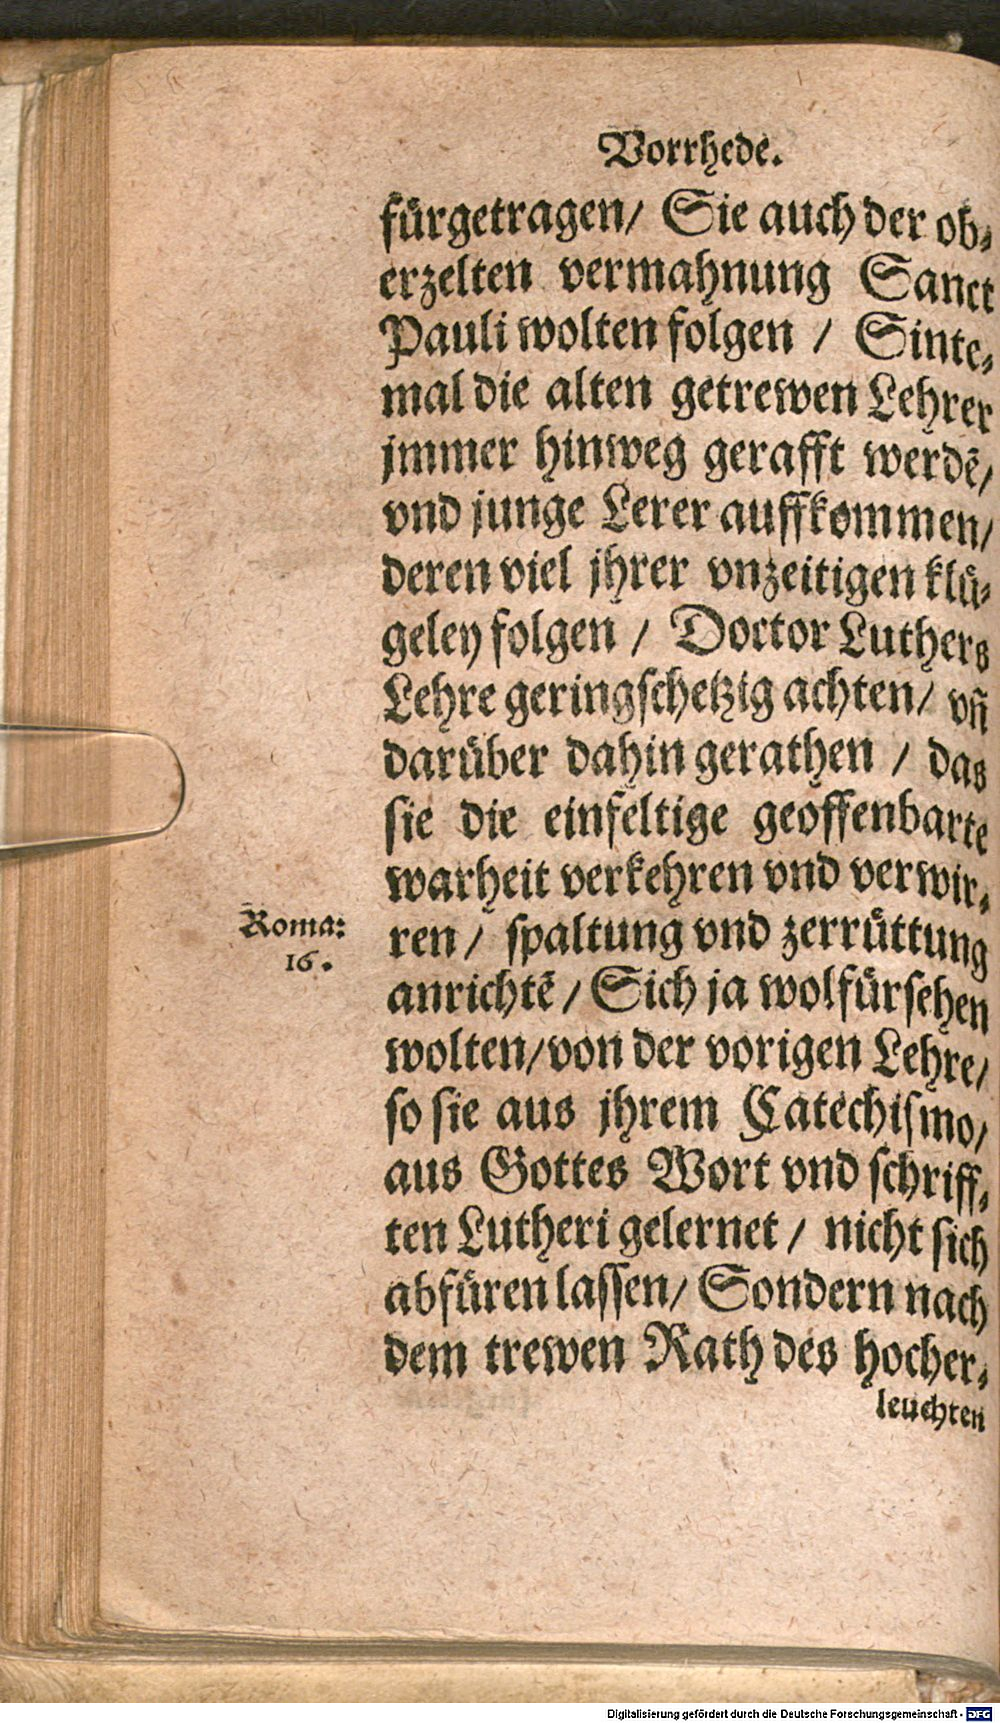 Vorrhede.
fürgetragen/ Sie auch der ob⸗
erzelten vermahnung Sanct
Pauli wolten folgen / Sinte⸗
mal die alten getrewen Lehrer
jmmer hinweg gerafft werdẽ/
vnd junge Lerer auffkommen/
deren viel jhrer vnzeitigen klü⸗
geley folgen / Doctor Luthers
Lehre geringschetzig achten/ vñ
darüber dahin gerathen / das
sie die einfeltige geoffenbarte
warheit verkehren vnd verwir⸗
Roma:
16.
ren / spaltung vnd zerrüttung
anrichtẽ / Sich ja wolfürsehen
wolten/von der vorigen Lehre/
so sie aus jhrem Catechismo/
aus Gottes Wort vnd schriff⸗
ten Lutheri gelernet / nicht sich
abfüren lassen/ Sondern nach
dem trewen Rath des hocher⸗
leuchten
Digitalisierung gefördert durch die Deutsche Forschungsgemeinschaft - DFG